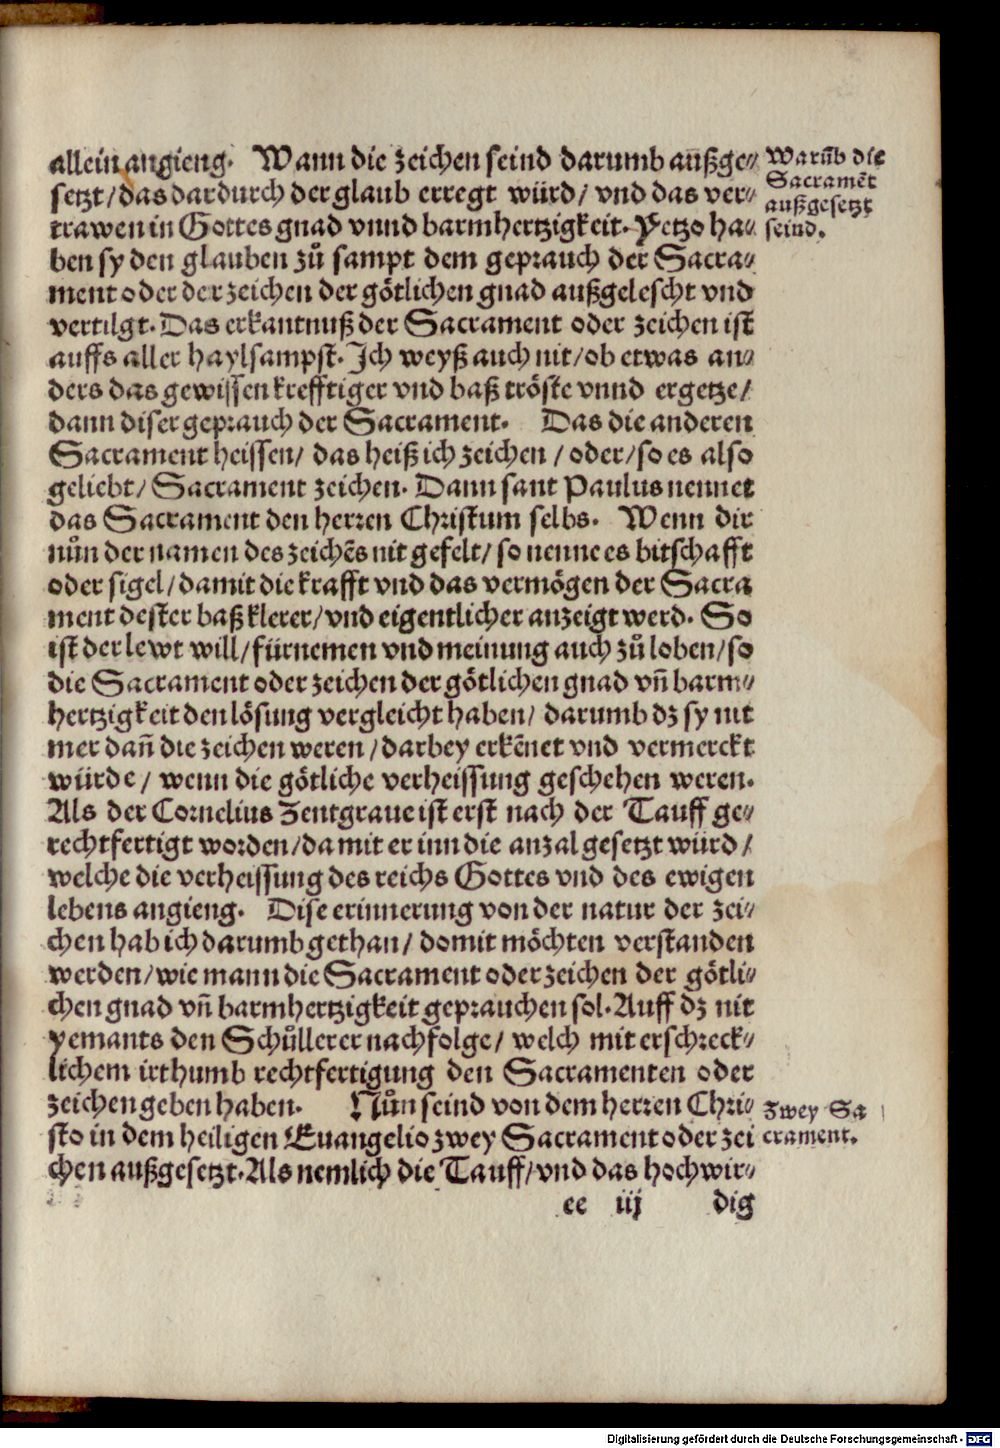 allein angieng. Wann die zeichen seind darumb außge⸗
setzt/ das dardurch der glaub erregt würd/ vnd das ver⸗
trawen in Gottes gnad vnnd barmhertzigkeit. Yetzo ha⸗
ben sy den glauben zů sampt dem geprauch der Sacra⸗
ment oder der zeichen der götlichen gnad außgelescht vnd
vertilgt. Das erkantnuß der Sacrament oder zeichen ist
auffs aller haylsampst. Ich weyß auch nit/ ob etwas an⸗
ders das gewissen krefftiger vnd baß tröste vnnd ergetze/
dann diser geprauch der Sacrament. Das die anderen
Sacrament heissen/ das heiß ich zeichen / oder/ so es also
geliebt/ Sacrament zeichen. Dann sant Paulus nennet
das Sacrament den herren Christum selbs. Wenn dir
nůn der namen des zeichẽs nit gefelt/ so nenne es bitschafft
oder sigel/ damit die krafft vnd das vermögen der Sacra
ment dester baß klerer/ vnd eigentlicher anzeigt werd. So
ist der lewt will/ fürnemen vnd meinung auch zů loben/ so
die Sacrament oder zeichen der götlichen gnad vñ barm⸗
hertzigkeit den lösung vergleicht haben/ darumb dz sy nit
mer dañ die zeichen weren/ darbey erkẽnet vnd vermerckt
würde/ wenn die götliche verheissung geschehen weren.
Als der Cornelius Zentgraue ist erst nach der Tauff ge⸗
rechtfertigt worden/ damit er inn die anzal gesetzt würd/
welche die verheissung des reichs Gottes vnd des ewigen
lebens angieng. Dise erinnerung von der natur der zei⸗
chen hab ich darumb gethan/ domit möchten verstanden
werden/ wie mann die Sacrament oder zeichen der götli⸗
chen gnad vñ barmhertzigkeit geprauchen sol. Auff dz nit
yemants den Schůllerer nachfolge/ welch mit erschreck⸗
lichem irthumb rechtfertigung den Sacramenten oder
zeichen geben haben. Nůn seind von dem herren Chri⸗
sto in dem heiligen Euangelio zwey Sacrament oder zei
chen außgesetzt. Als nemlich die Tauff/ vnd das hochwir⸗
ee iij dig
Warũb die
Sacramẽt
außgesetzt
seind.
Zwey Sa
crament.
Digitalisierung gefördert durch die Deutsche Forschungsgemeinschaft - DFG